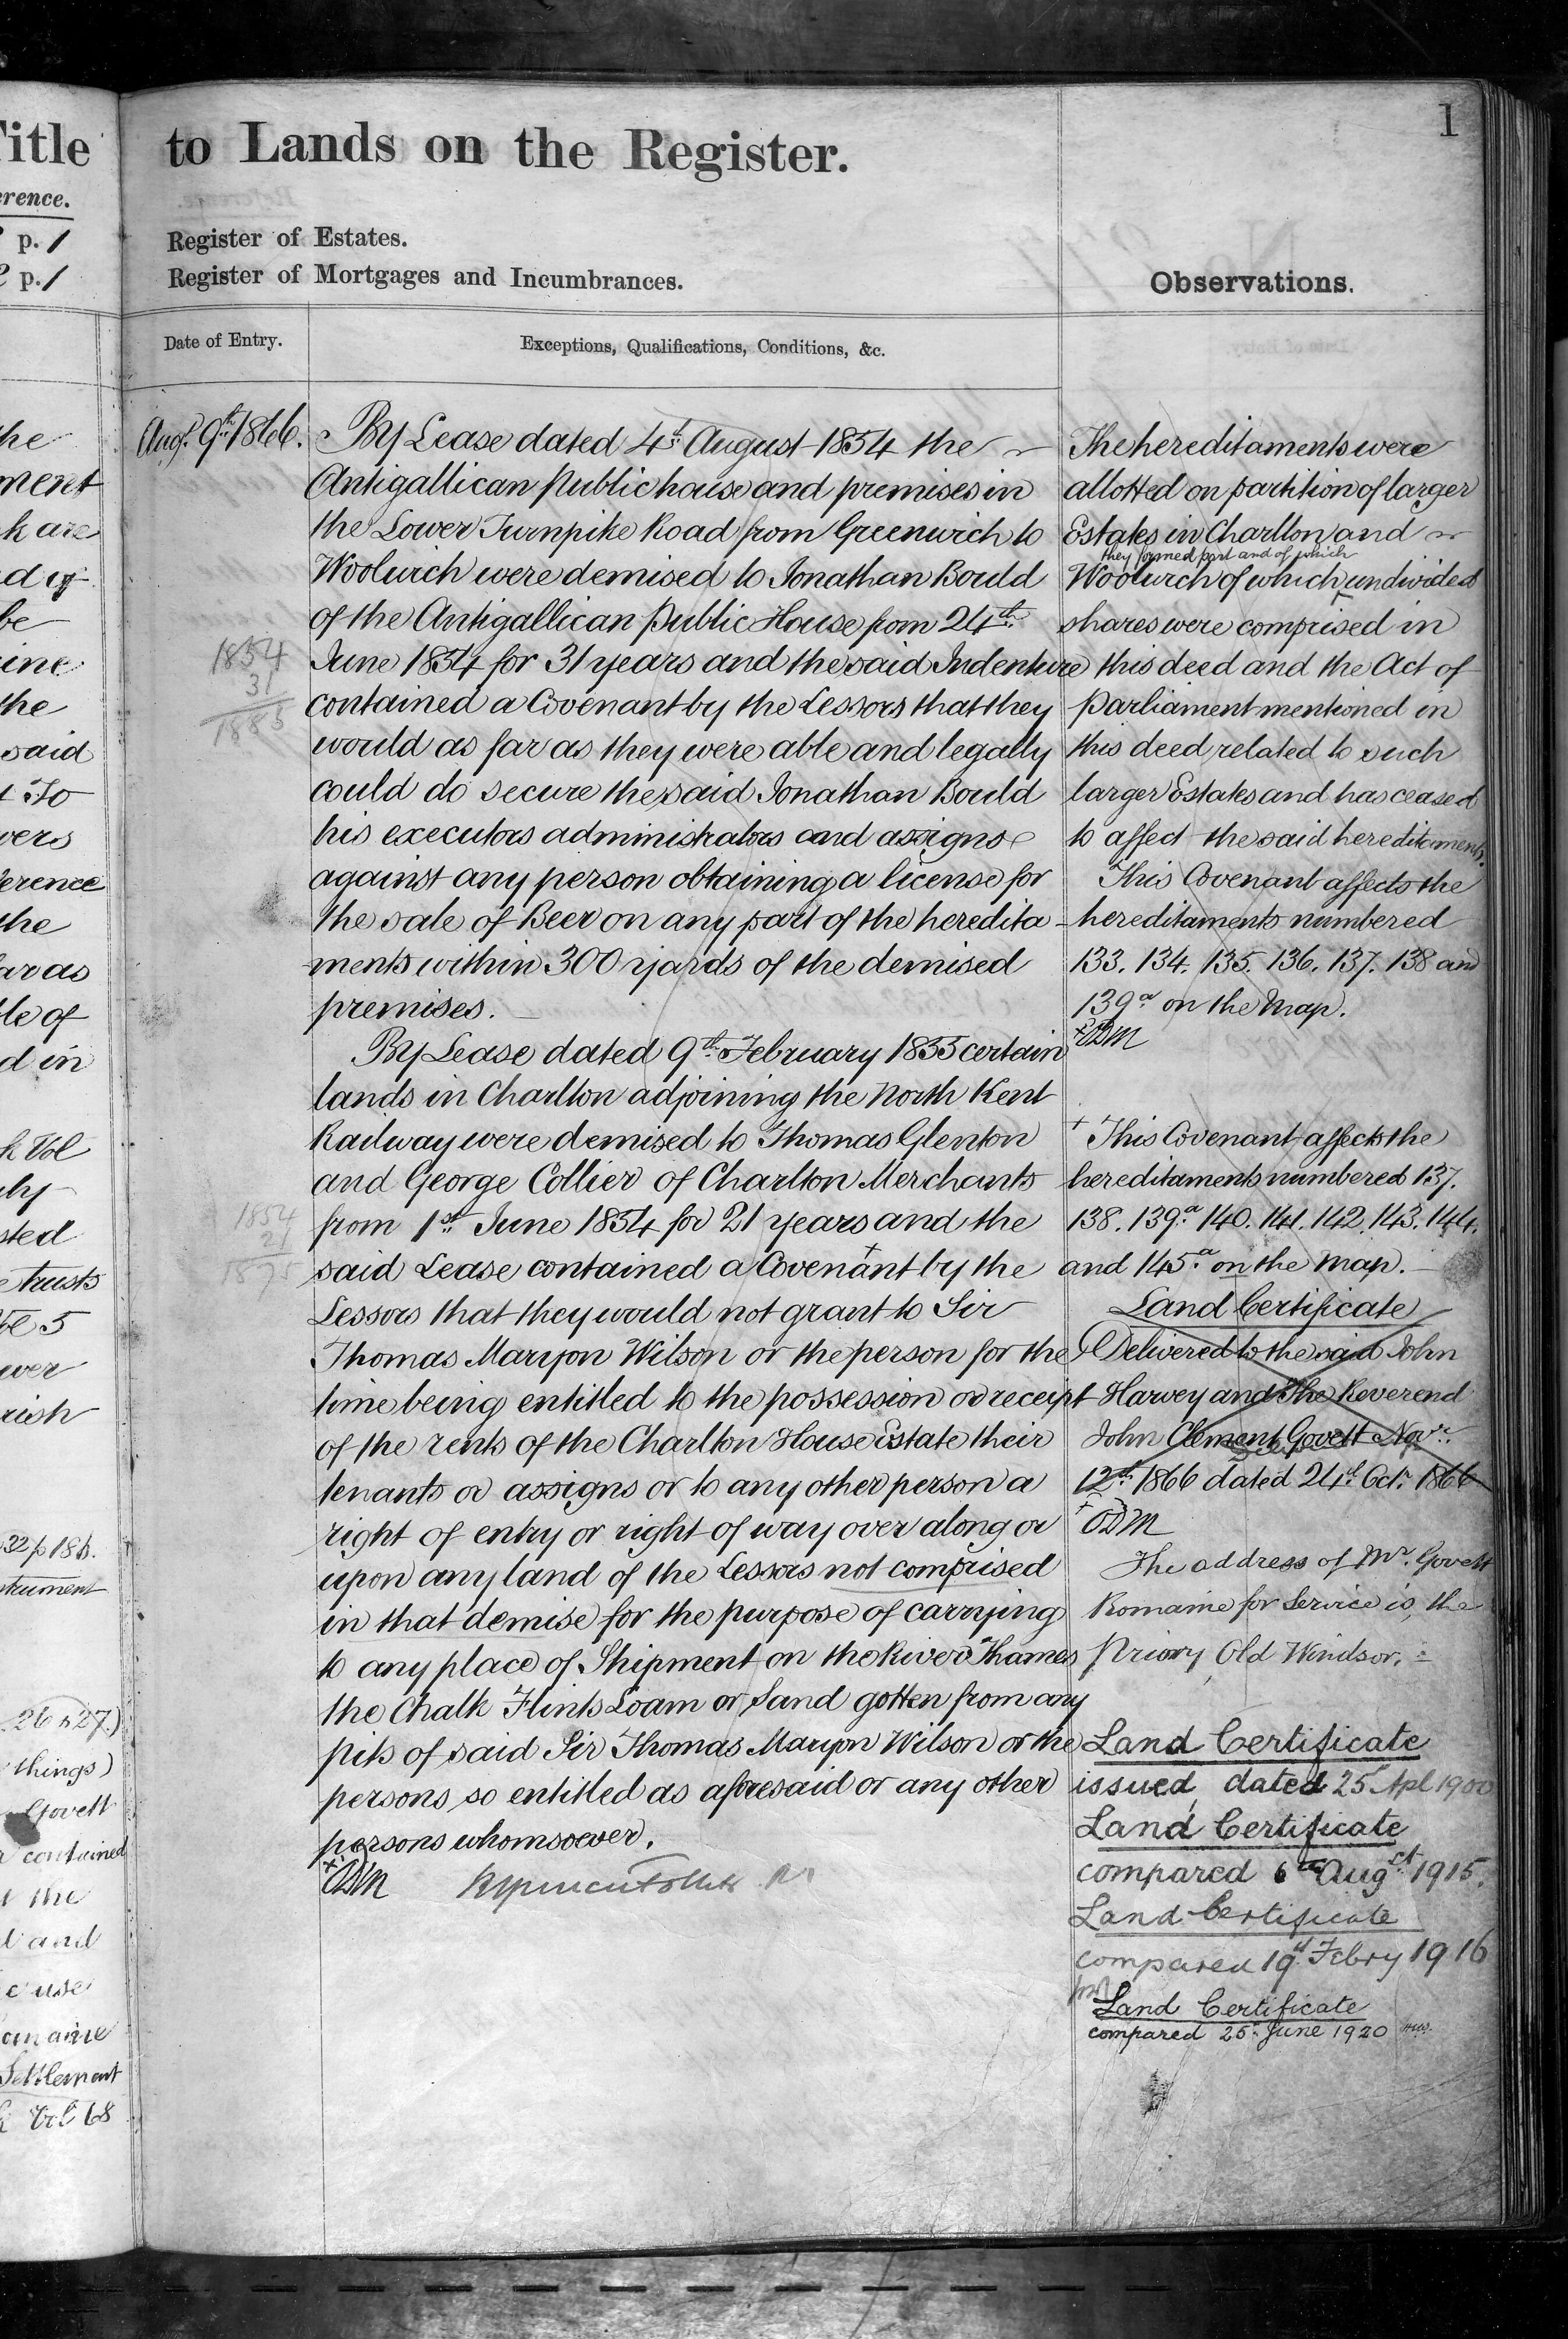 Title
erence.
p. 1
p. 1
the
ment
k are
be
the
said
To
vers
ference
the
far as
ble of
d in
Vol
sted
trusts
5
ever
rish
32 p 186.
strument
26 & 27.)
things)
Govett
contained
the
and
Settlement
Vol 68
1
to Lands on the Register.
Register of Estates.
Register of Mortgages and Incumbrances.
Date of Entry.
Exceptions, Qualifications, Conditions, &c.
Augt. 9th 1866.
By Lease dated 4th August 1854 the
Antigallican Public house and premises in
the Lower Turnpike Road from Greenwich to
Woolwich were demised to Jonathan Bould
of the Antigallican Public House from 24th
June 1854 for 31 years and the said Indenture
contained a Covenant by the Lessors that they
would as far as they were able and legally
could do secure the said Jonathan Bould
his executors administrators and assigns
against any person obtaining a license for
the sale of Beer on any part of the heredita-
ments within 300 yards of the demised
premises.
1854
31
1885
By Lease dated 9th February 1855 certain
lands in Charlton adjoining the North Kent
Railway were demised to Thomas Glenton
and George Collier of Charlton Merchants
from 1st June 1854 for 21 years and the
said Lease contained a Covenant + by the
Lessors that they would not grant to Sir
Thomas Maryon Wilson or the person for the
time being entitled to the possession or receipt
of the rents of the Charlton House Estate their
tenants or assigns or to any other person a
right of entry or right of way over along or
upon any land of the Lessors not comprised
in that demise for the purpose of carrying
to any place of Shipment on the River Thames
the Chalk Flints Loam or Sand gotten from any
pits of said Sir Thomas Maryon Wilson or the
persons so entitled as aforesaid or any other
persons whomsoever.
1854
21
1875
Observations.
The hereditaments were
allotted on partition of larger
Estates in Charlton and
they formed part and of which
Woolwich of which undivided
shares were comprised in
this deed and the Act of
Parliament mentioned in
this deed related to such
larger Estates and has ceased
to affect the said hereditaments.
This Covenant affects the
hereditaments numbered
133. 134. 135. 136. 137. 138 and
139a on the Map.
+ This Covenant affects the
hereditaments numbered 137.
138. 139a 140. 141. 142. 143. 144.
and 145a on the Map.
Land Certificate
Delivered to the said John
Harvey and The Reverend
John Clement Govett Novr.
12th 1866 dated 24th Octr. 1866
The address of Mr. Govett
Romaine for Service is, the
Priory Old Windsor.
Land Certificate
issued, dated 25 Apl 1900
Land Certificate
compared 6th Augst 1915.
Land Certificate
compared 19th Febry 1916
Land Certificate
compared 25th June 1920